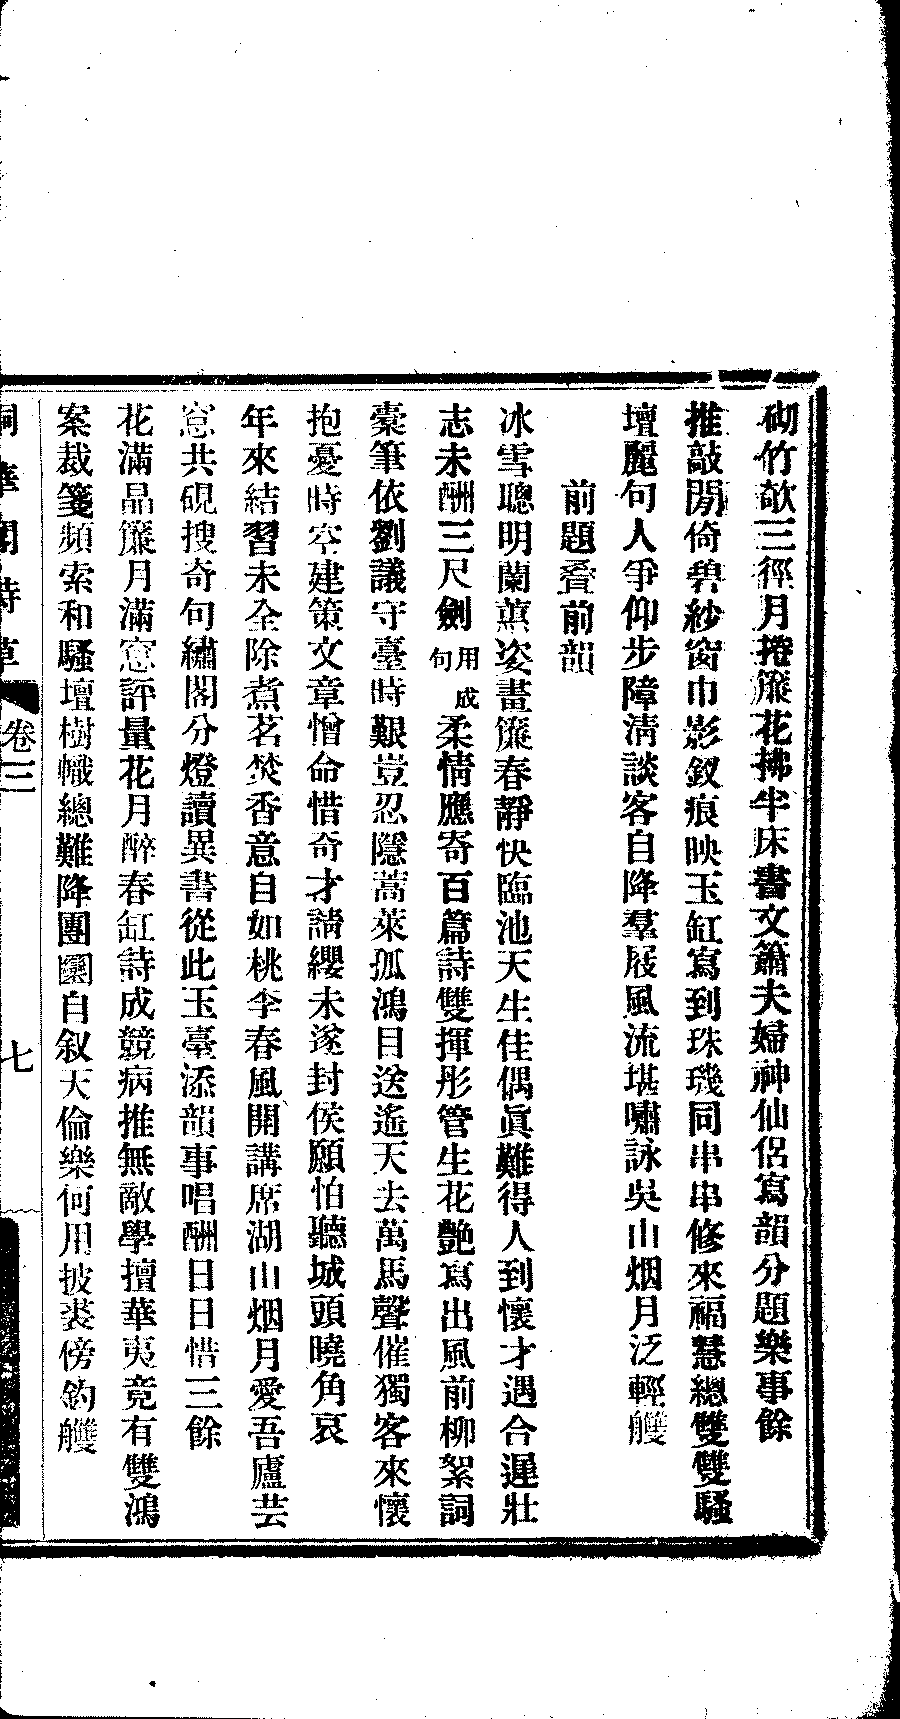 砌竹欹三徑月捲簾花拂半床書文簫夫婦神仙侶寫韻分題樂事餘
推敲閒倚碧紗窗巾影釵痕映玉缸寫到珠璣同串串修來福慧總雙雙騷
壇麗句人爭仰步障清談客自降羣屐風流堪嘯詠吳山烟月泛輕艭
前題疊前韻
冰雪聰明蘭蕙姿畫簾春靜快臨池天生佳偶眞難得人到懷才遇合遲壯
志未酬三尺劍用成句柔情應寄百篇詩雙揮彤管生花艷寫出風前柳絮詞
橐筆依劉議守臺時艱豈忍隱蒿萊孤鴻目送遙天去萬馬聲催獨客來懷
抱憂時空建策文章憎命惜奇才請纓未遂封侯願怕聽城頭曉角哀
年來結習未全除煮茗焚香意自如桃李春風開講席湖山烟月愛吾廬芸
窻共硯搜奇句繡閣分燈讀異書從此玉臺添韻事唱酬日日惜三餘
花滿晶簾月滿窻評量花月醉春缸詩成競病推無敵學擅華夷竟有雙鴻
案裁箋頻索和騷壇樹幟總難降團圞自叙天倫樂何用披裘傍釣艭
卷三
七